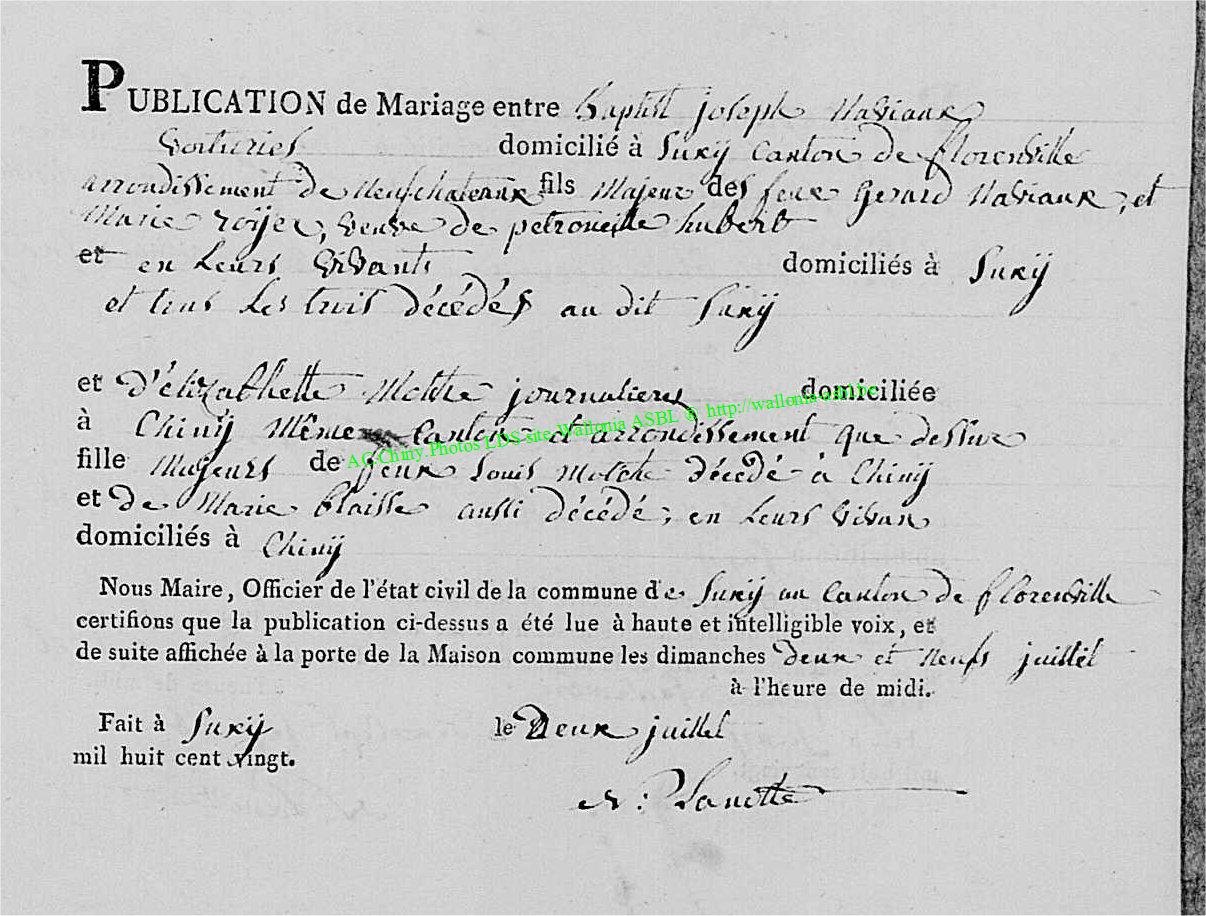 PUBLICATION de Mariage entre Baptist joseph Naviaux
Voituries domicilié à Suxÿ Canton de florenville
arrondissement de Neufchateaux fils Majeur des feux Gerard Naviaux, et
Marie roÿer, veuve de petronille hubert
et en Leurs Vivants domiciliés à Suxÿ
et tous Les trois décédés au dit Suxÿ
et D'élizabhette Motche journalieres domiciliée
à Chinÿ Même Canton et arrondissement que dessue
AC Chiny.Photos LDS site Wallonia ASBL @ http://wallonia-asbl.be
fille Majeurs de feux Louis Motche décédé à Chinÿ
et de Marie blaisse aussi décédé, en Leurs Vivan
domiciliés à Chinÿ
Nous Maire, Officier de l'état civil de la commune de Suxÿ au Canton de florenville
certifions que la publication ci-dessus a été lue à haute et intelligible voix, et
de suite affichée à la porte de la Maison commune les dimanches deux et Neufs juillet
à l'heure de midi.
Fait à Suxÿ le Deux juillet
mil huit cent vingt.
Lanotte